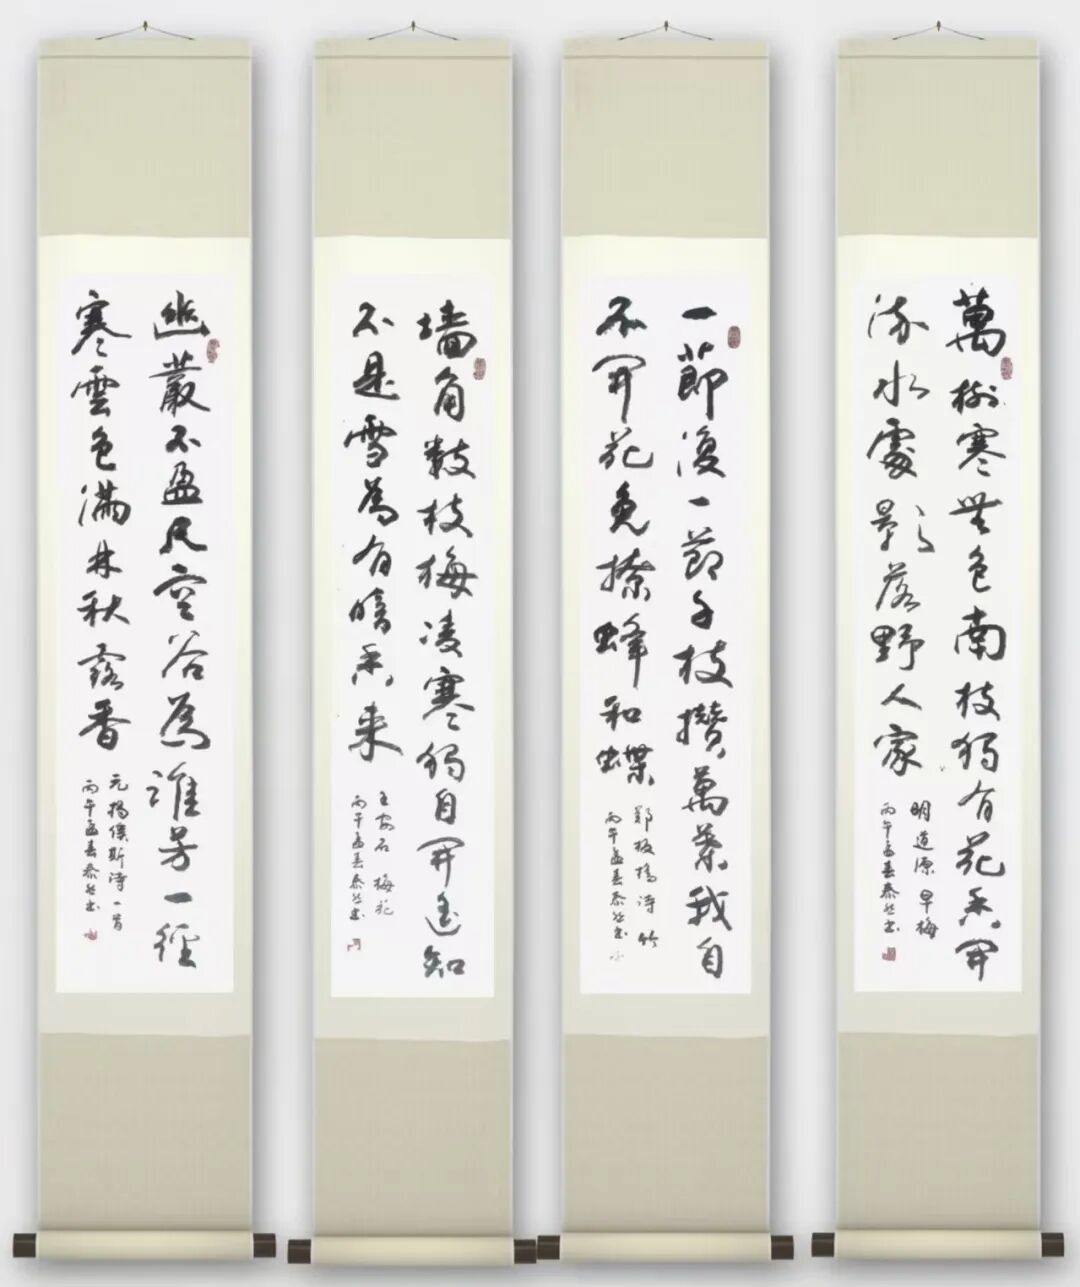 萬樹寒無色南枝獨有花香聞
流水處影落野人家
明道源 早梅
丙午孟春泰然書
一節復一節千枝攢萬葉我自
不開花免撩蜂和蝶
鄭板橋詩 竹
丙午孟春泰然書
墙角數枝梅凌寒獨自開遥知
不是雪為有暗香来
王安石 梅花
丙午孟春泰然書
幽叢不盈尺空谷為誰芳一徑
寒雲色滿林秋露香
元揭傒斯詩一首
丙午孟春泰然書